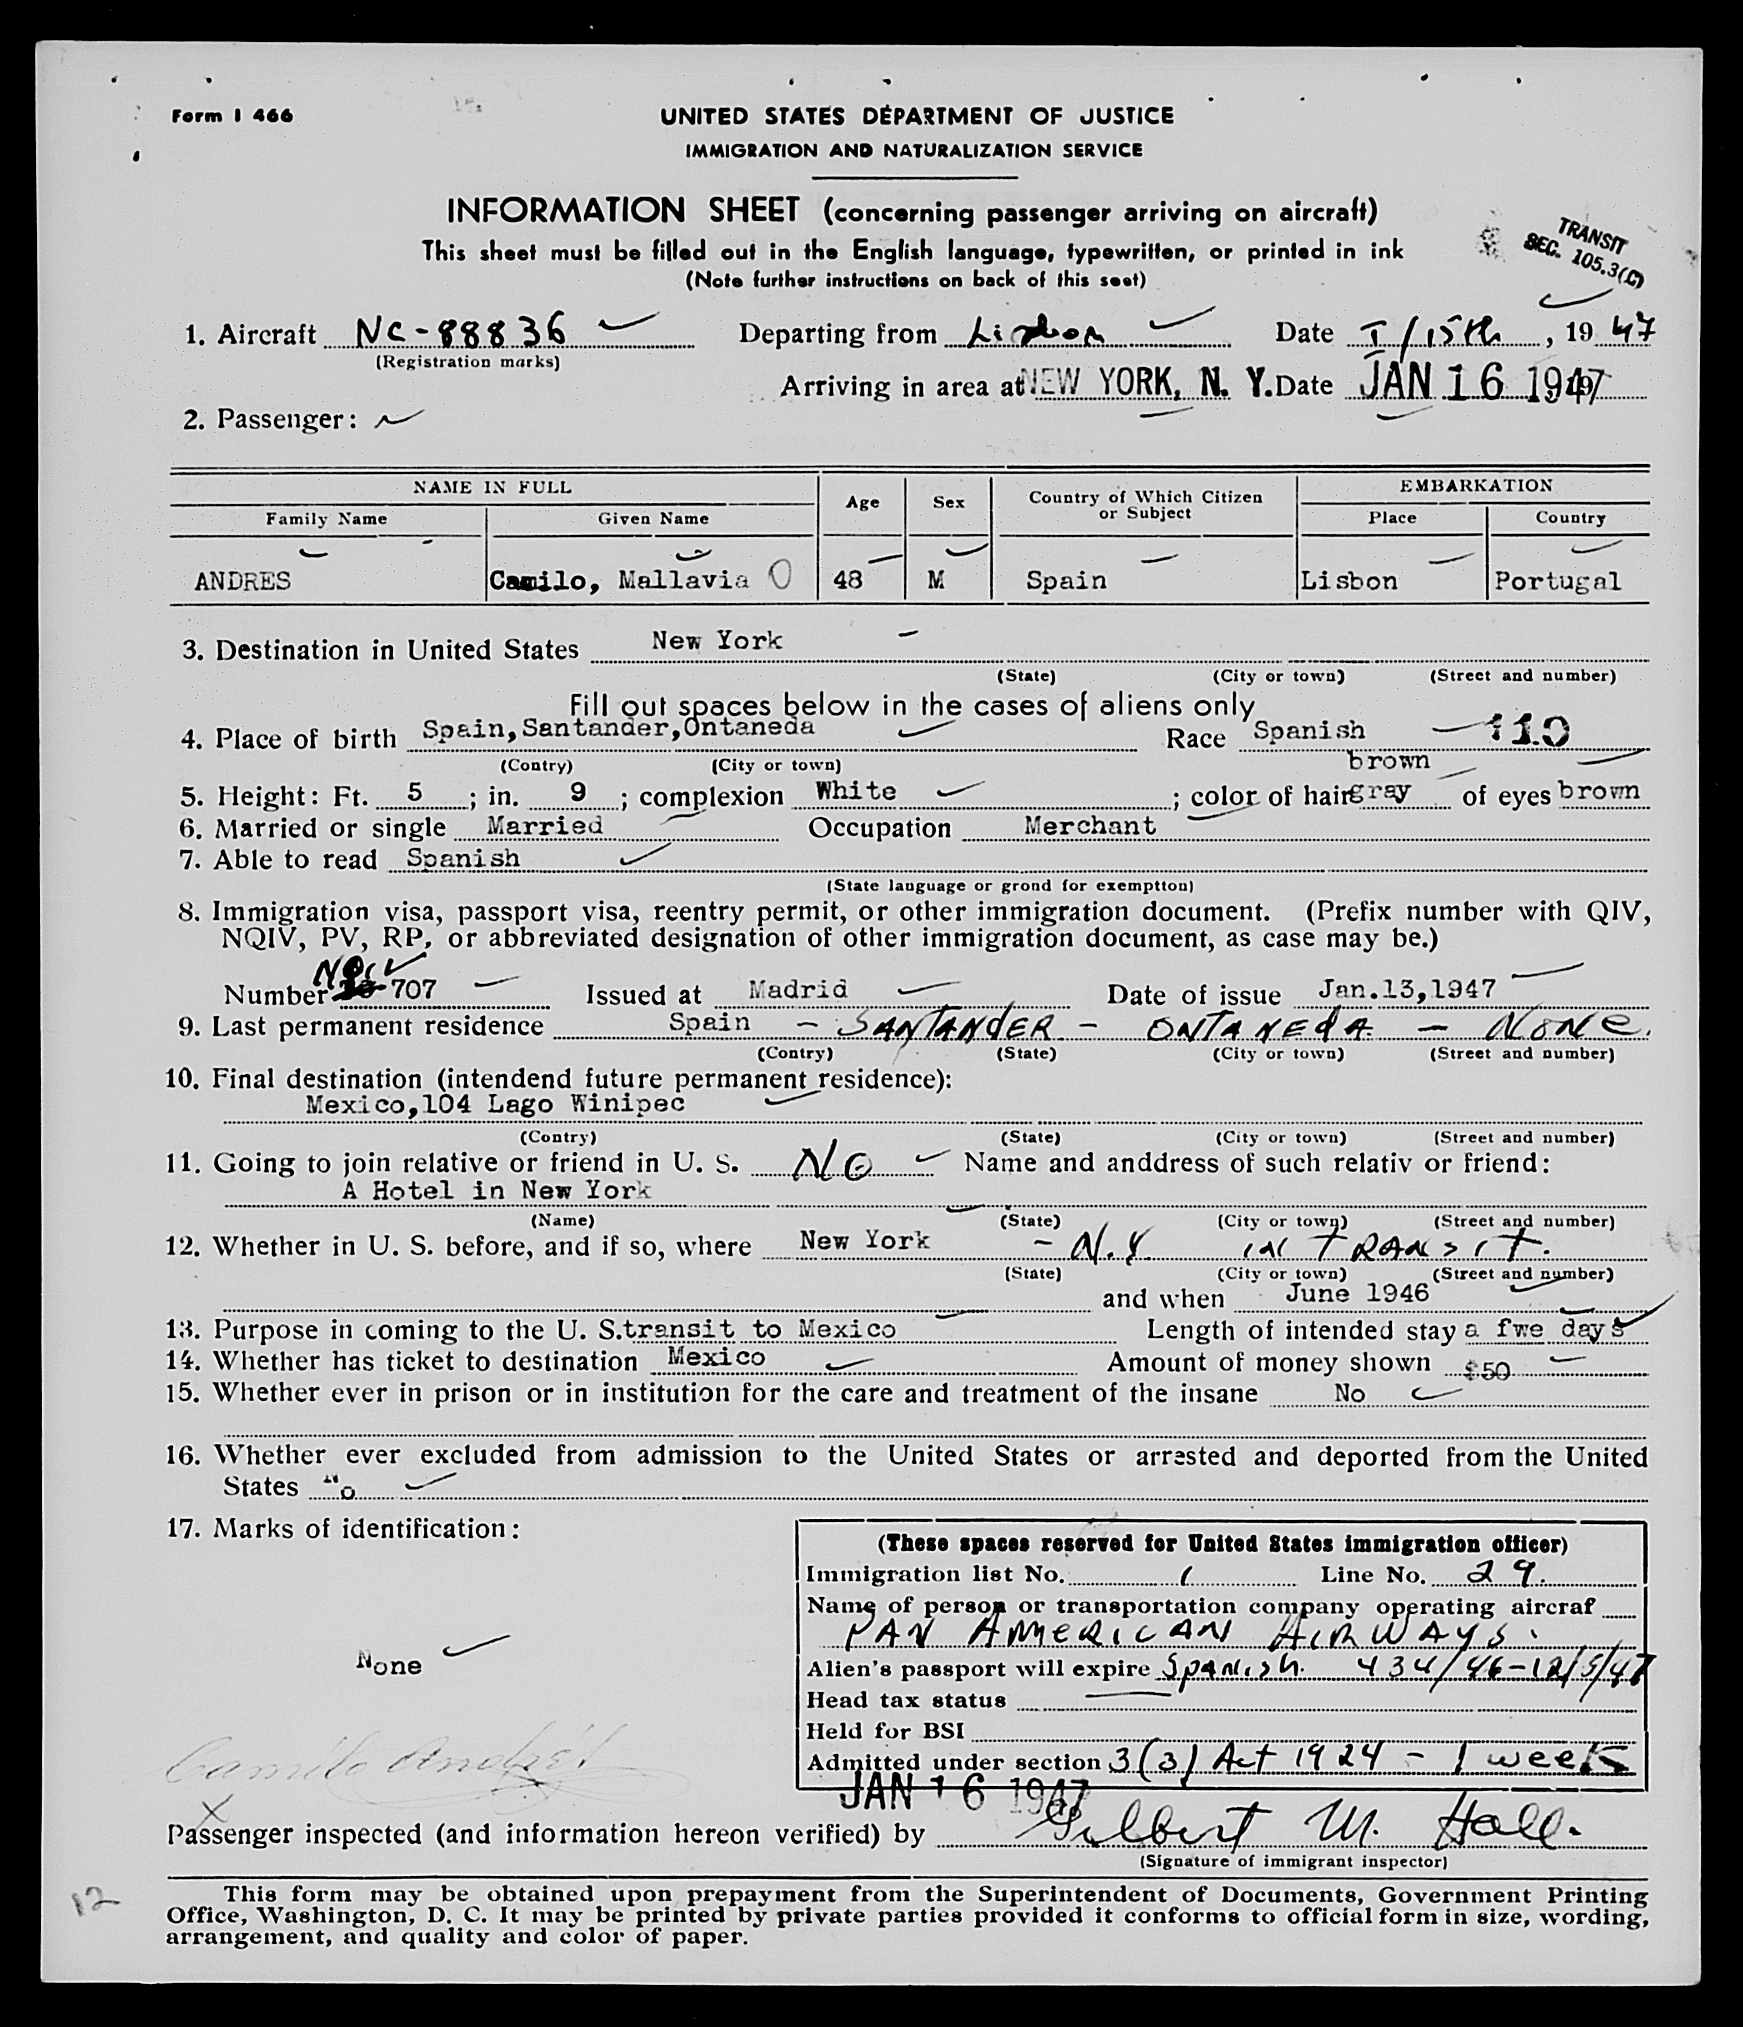 Form I 466
UNITED STATES DEPARTMENT OF JUSTICE
IMMIGRATION AND NATURALIZATION SERVICE
INFORMATION SHEET (concerning passenger arriving on aircraft)
This sheet must be filled out in the English language, typewritten, or printed in ink
(Note further instructions on back of this seet)
TRANSIT
SEC. 105.3(C)
1. Aircraft NC-88836 Departing from Lisbon Date I/15th, 1947
(Registration marks)
Arriving in area at NEW YORK, N. Y. Date JAN 16 1947
2. Passenger:
NAME IN FULL Age Sex Country of Which Citizen or Subject EMBARKATION
Family Name Given Name Place Country
ANDRES Camilo, Mallavia O 48 M Spain Lisbon Portugal
3. Destination in United States New York
(State) (City or town) (Street and number)
Fill out spaces below in the cases of aliens only
4. Place of birth Spain, Santander, Ontaneda Race Spanish 110
(Contry) (City or town) brown
5. Height: Ft. 5 ; in. 9 ; complexion White ; color of hair gray of eyes brown
6. Married or single Married Occupation Merchant
7. Able to read Spanish
(State language or grond for exemption)
8. Immigration visa, passport visa, reentry permit, or other immigration document. (Prefix number with QIV,
NQIV, PV, RP, or abbreviated designation of other immigration document, as case may be.)
NQIV
Number 707 Issued at Madrid Date of issue Jan.13,1947
9. Last permanent residence Spain - SANTANdER - ONTANEdA - NONe.
(Contry) (State) (City or town) (Street and number)
10. Final destination (intendend future permanent residence):
Mexico,104 Lago Winipec
(Contry) (State) (City or town) (Street and number)
11. Going to join relative or friend in U. S. NO Name and anddress of such relativ or friend:
A Hotel in New York
(Name) (State) (City or town) (Street and number)
12. Whether in U. S. before, and if so, where New York - N.Y. IN TRANSIT.
(State) (City or town) (Street and number)
and when June 1946
13. Purpose in coming to the U. S. transit to Mexico Length of intended stay a fwe days
14. Whether has ticket to destination Mexico Amount of money shown $50
15. Whether ever in prison or in institution for the care and treatment of the insane No
16. Whether ever excluded from admission to the United States or arrested and deported from the United
States No
17. Marks of identification:
None
(These spaces reserved for United States immigration officer)
Immigration list No. 1 Line No. 29.
Name of person or transportation company operating aircraf
PAN AMERICAN AIRWAYS.
Alien's passport will expire Spanish. 434/46-12/5/47
Head tax status
Held for BSI
Admitted under section 3(3) Act 1924 - 1 week
Camilo Andrés
JAN 16 1947
X
Passenger inspected (and information hereon verified) by Gilbert M. Hall.
(Signature of immigrant inspector)
12
This form may be obtained upon prepayment from the Superintendent of Documents, Government Printing
Office, Washington, D. C. It may be printed by private parties provided it conforms to official form in size, wording,
arrangement, and quality and color of paper.